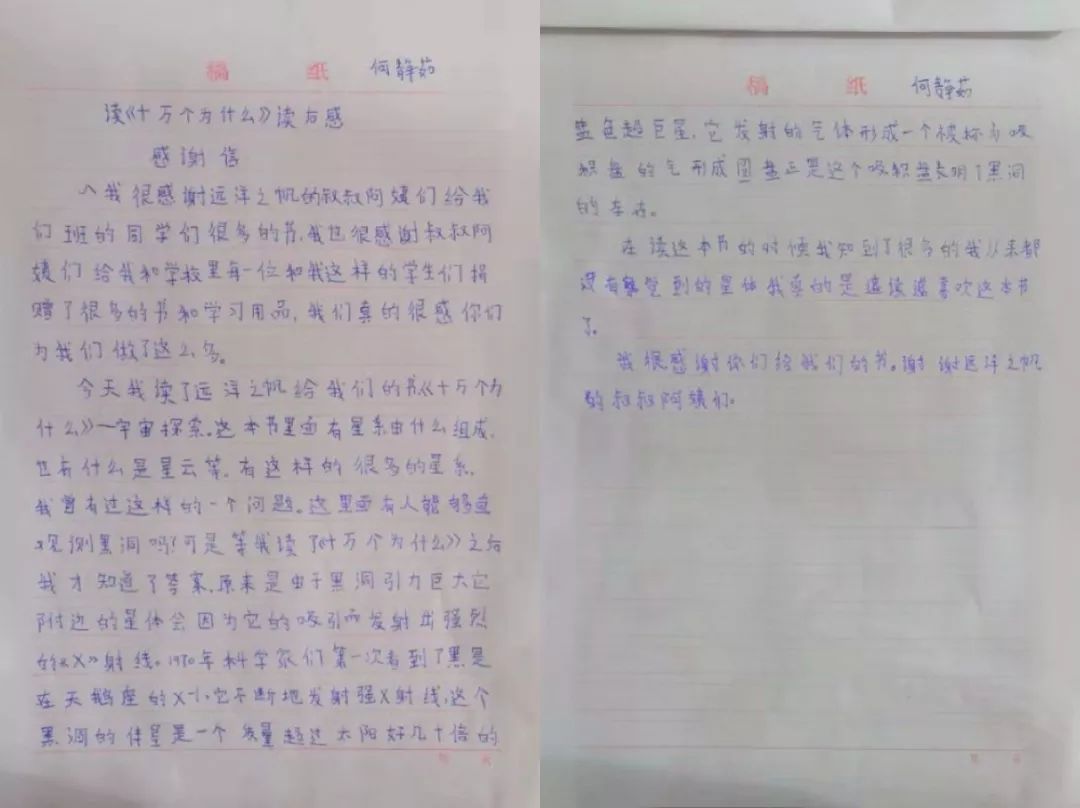 稿 纸 何静茹
读《十万个为什么》读右感
感谢信
我很感谢远洋之帆的叔叔阿姨们给我
们班的同学们很多的书,我也很感谢叔叔阿
姨们给我和学校里每一位和我这样的学生们捐
赠了很多的书和学习用品,我们真的很感你们
为我们做了这么多。
今天我读了远洋之帆给我们的书《十万个为
什么》一宇宙探索。这本书里面有星系由什么组成,
也有什么是星云等,有这样的很多的星系,
我曾有过这样的一个问题。这里面有人能够直
观测黑洞吗?可是等我读了《十万个为什么》之后
我才知道了答案,原来是由于黑洞引力巨大它
附边的星体会因为它的吸引而发射出强烈
的《X》射线。1970年科学家们第一次看到了黑是
在天鹅座的X-1,它不断地发射强X射线,这个
黑洞的伴星是一个质量超过太阳好几十倍的
稿 纸 何静茹
蓝色超巨星,它发射的气体形成一个被称为吸
积盘的气形成圆盘正是这个吸积盘表明了黑洞
的存在。
在读这本书的时候我知到了很多的我从来都
没有察觉到的星体我真的是遍读遍喜欢这本书
了。
我很感谢你们给我们的书。谢谢远洋之帆
的叔叔阿姨们。